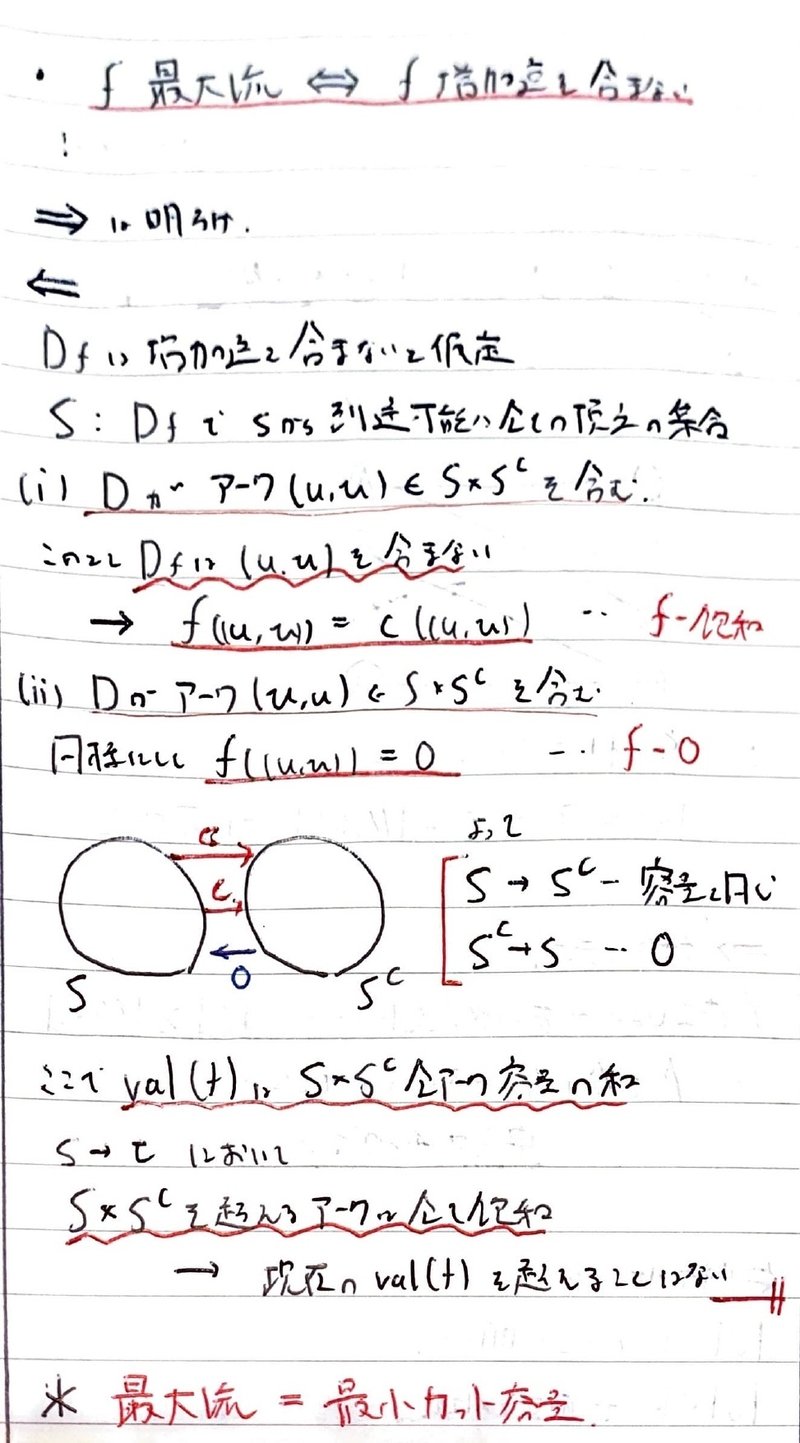 ・ f 最大流 ⇔ f 増加道を含まない
!
⇒ は明らか.
⇐
Df は増加道を含まないと仮定
S : Df で sから到達可能な全ての頂点の集合
(i) D が アーク(u,u) ∈ S×S^c を含む.
このとき Df は (u,u) を含まない
→ f((u,u)) = c((u,u)) … f-飽和
(ii) D が アーク(u,u) ∈ S×S^c を含む
同様にして f((u,u)) = 0 … f-0
よって
c c 0 S S^c
S → S^c - 容量と同じ
S^c → S … 0
ここで val(f) は S×S^c 全アーク容量の和
s → t において
S×S^c を超えるアークは全て飽和
→ 現在の val(f) を超えることはない
* 最大流 = 最小カット容量.